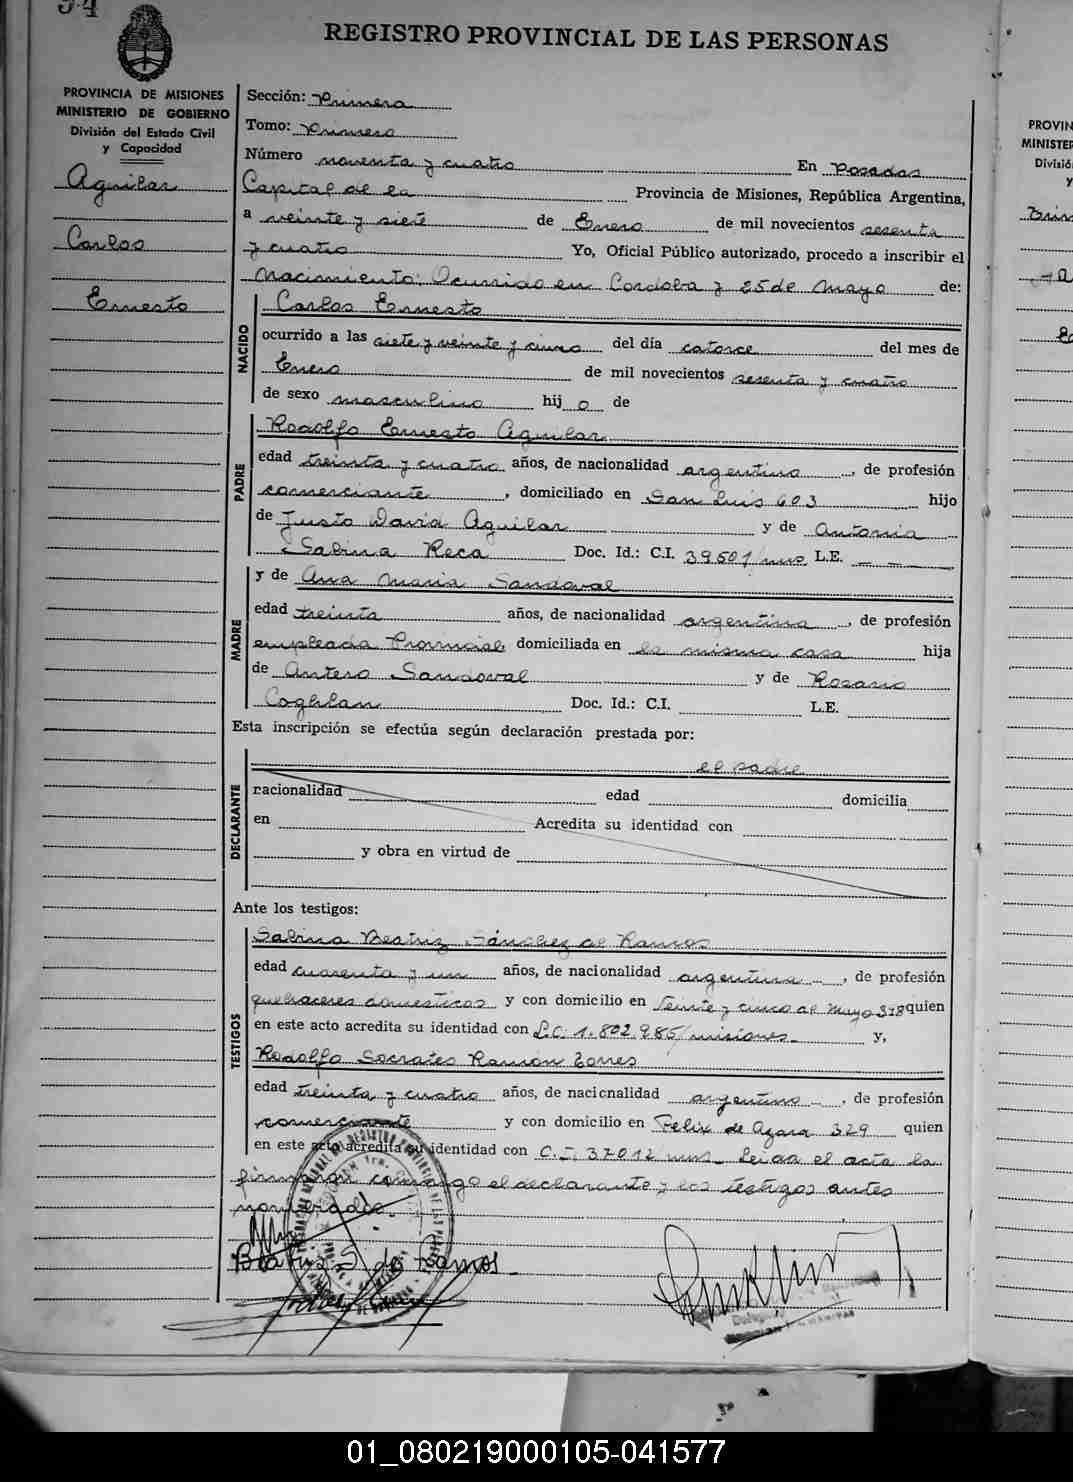 94
REGISTRO PROVINCIAL DE LAS PERSONAS
PROVINCIA DE MISIONES
MINISTERIO DE GOBIERNO
División del Estado Civil
y Capacidad
Aguilar
Carlos
Ernesto
Sección: Primera
Tomo: Primero
Número noventa y cuatro En Posadas
Capital de la Provincia de Misiones, República Argentina,
a veinte y siete de Enero de mil novecientos sesenta
y cuatro Yo, Oficial Público autorizado, procedo a inscribir el
Nacimiento: Ocurrido en Cordoba y 25 de Mayo de:
NACIDO
Carlos Ernesto
ocurrido a las siete y veinte y cinco del día catorce del mes de
Enero de mil novecientos sesenta y cuatro
de sexo masculino hij o de
PADRE
Rodolfo Ernesto Aguilar
edad treinta y cuatro años, de nacionalidad argentino, de profesión
comerciante, domiciliado en San Luis 603 hijo
de Justo David Aguilar y de Antonia
Sabina Reca Doc. Id.: C.I. 39501/mns. L.E. — —
MADRE
y de Ana Maria Sandoval
edad treinta años, de nacionalidad argentina, de profesión
empleada Provincial, domiciliada en la misma casa hija
de Antero Sandoval y de Rosario
Coghlan Doc. Id.: C.I. L.E.
Esta inscripción se efectúa según declaración prestada por:
DECLARANTE
el padre
nacionalidad edad domicilia
en Acredita su identidad con
y obra en virtud de
Ante los testigos:
TESTIGOS
Sabina Beatriz Sánchez de Ramos
edad cuarenta y un años, de nacionalidad argentina, de profesión
quehaceres domesticos y con domicilio en Veinte y cinco de Mayo 378 quien
en este acto acredita su identidad con L.C. 1.802.985/misiones y,
Rodolfo Socrates Ramón Torres
edad treinta y cuatro años, de nacionalidad argentino, de profesión
comerciante y con domicilio en Felix de Azara 329 quien
en este acto acredita su identidad con C.I. 37012 mns. Leida el acta la
firmaron conmigo el declarante y los testigos antes
nombrados.
Beatriz S de Ramos
PROVIN
MINISTER
Divisió
y
01_080219000105-041577